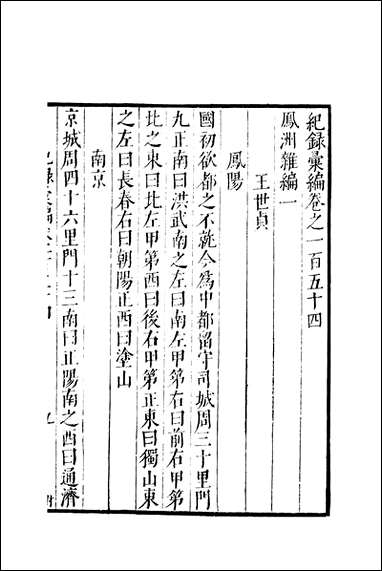 紀錄彙編卷之一百五十四
鳳洲雜編一
王世貞
鳳陽
國初欲都之不就今爲中都留守司城周三十里門
九正南曰洪武南之左曰南左甲第右曰前右甲第
北之東曰北左甲第西曰後右甲第正東曰獨山東
之左曰長春右曰朝陽正西曰塗山
南京
京城周四十六里門十三南曰正陽南之西曰通濟